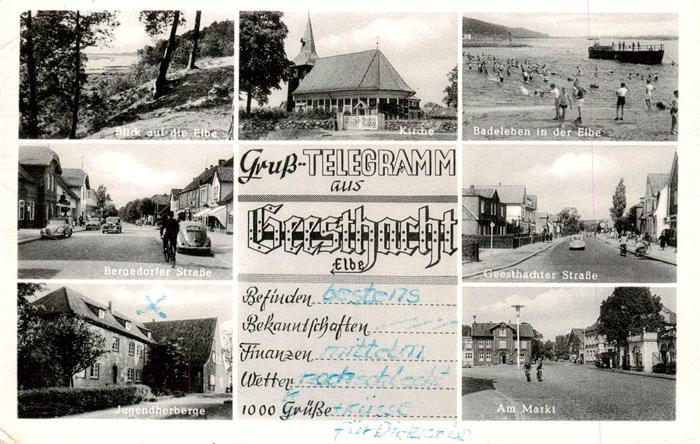 Blick auf die Elbe
Kirche
Badeleben in der Elbe
Gruß-TELEGRAMM
aus
Geesthacht
Elbe
Bergedorfer Straße
Geesthachter Straße
Befinden bestens
Bekanntschaften
Finanzen mittelm
Wetter schlecht
1000 Grüße Küsse
für
Jugendherberge
Am Markt